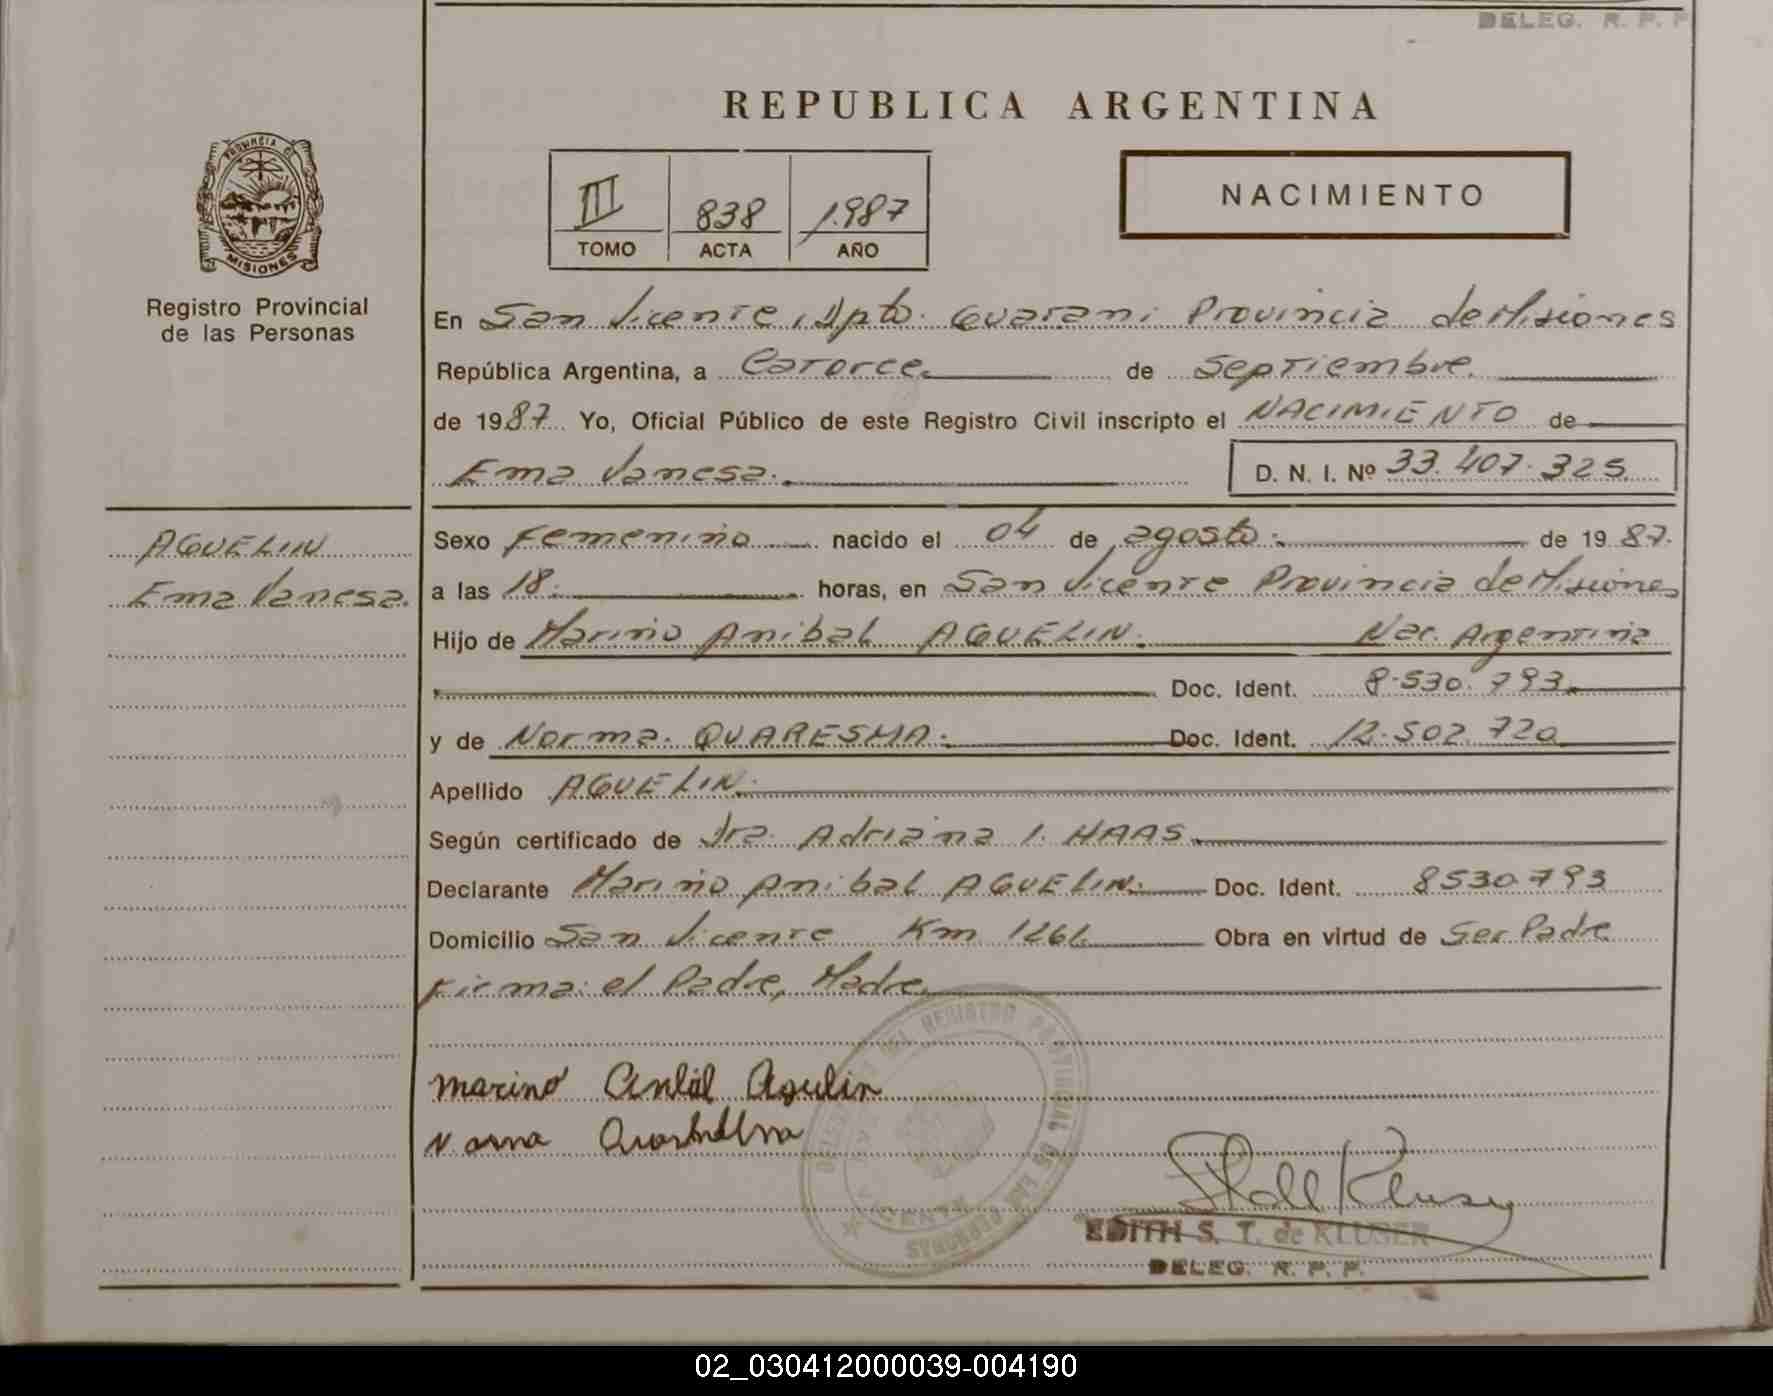 DELEG. R. P. P
REPUBLICA ARGENTINA
PROVINCIA DE
MISIONES
Registro Provincial
de las Personas
III 838 1.987
TOMO ACTA AÑO
NACIMIENTO
En San Vicente, Dpto. Guarani Provincia de Misiones
República Argentina, a Catorce. de Septiembre.
de 1987. Yo, Oficial Público de este Registro Civil inscripto el NACIMIENTO de
Ema Vanesa. D. N. I. Nº 33.407.325
AGUELIN
Ema Vanesa.
Sexo Femenino nacido el 04 de agosto. de 1987.
a las 18. horas, en San Vicente Provincia de Misiones
Hijo de Marino Anibal AGUELIN. Nac. Argentina
Doc. Ident. 8.530.793.
y de Norma. QUARESMA. Doc. Ident. 12.502.720
Apellido AGUELIN.
Según certificado de Dra. Adriana I. HAAS.
Declarante Marino Anibal AGUELIN. Doc. Ident. 8530793
Domicilio San Vicente Km 1266 Obra en virtud de Ser Padre
Firma: el Padre, Madre.
marino Anibal Aguelin
EDITH S. T. de KLUSER
DELEG. R. P. P.
02_030412000039-004190